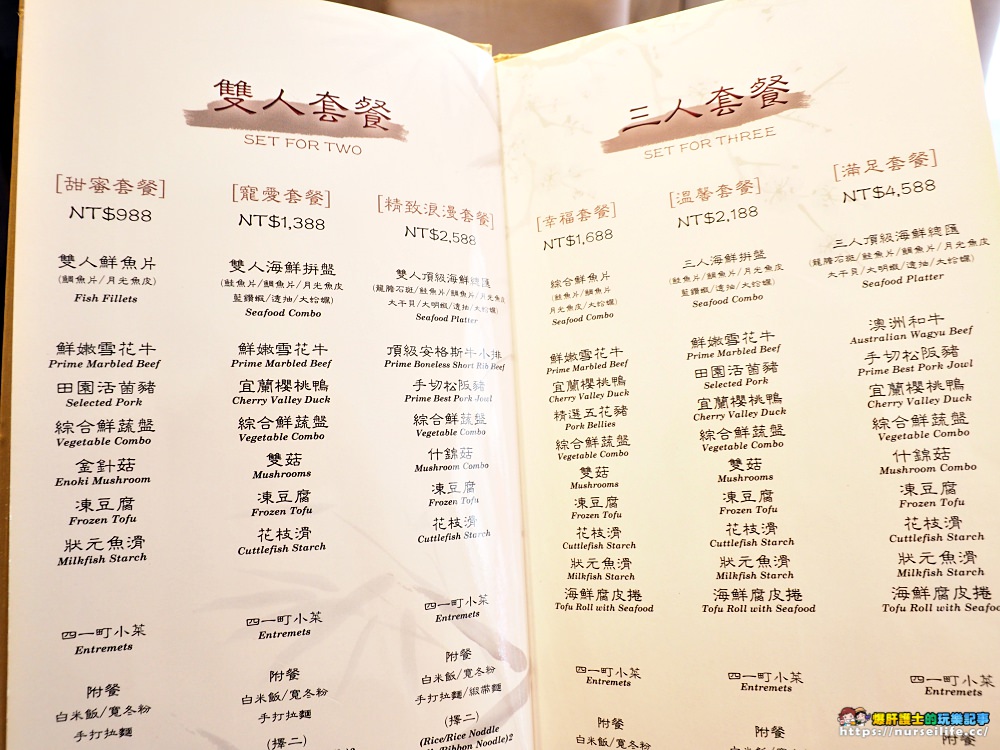 雙人套餐
SET FOR TWO
[甜蜜套餐]
NT$988
雙人鮮魚片
(鯛魚片/月光魚皮)
Fish Fillets
鮮嫩雪花牛
Prime Marbled Beef
田園活菌豬
Selected Pork
綜合鮮蔬盤
Vegetable Combo
金針菇
Enoki Mushroom
凍豆腐
Frozen Tofu
狀元魚滑
Milkfish Starch
四一町小菜
Entremets
附餐
白米飯/寬冬粉
手打拉麵
[寵愛套餐]
NT$1,388
雙人海鮮拼盤
(鮭魚片/鯛魚片/月光魚皮
藍鑽蝦/透抽/大蛤蠣)
Seafood Combo
鮮嫩雪花牛
Prime Marbled Beef
宜蘭櫻桃鴨
Cherry Valley Duck
綜合鮮蔬盤
Vegetable Combo
雙菇
Mushrooms
凍豆腐
Frozen Tofu
花枝滑
Cuttlefish Starch
四一町小菜
Entremets
附餐
白米飯/寬冬粉
手打拉麵
(擇二)
[精致浪漫套餐]
NT$2,588
雙人頂級海鮮總匯
(龍膽石斑/鮭魚片/鯛魚片/月光魚皮
大干貝/大明蝦/透抽/大蛤蠣)
Seafood Platter
頂級安格斯牛小排
Prime Boneless Short Rib Beef
手切松阪豬
Prime Best Pork Jowl
綜合鮮蔬盤
Vegetable Combo
什錦菇
Mushroom Combo
凍豆腐
Frozen Tofu
花枝滑
Cuttlefish Starch
四一町小菜
Entremets
附餐
白米飯/寬冬粉
手打拉麵/緞帶麵
(擇二)
(Rice/Rice Noddle
/Ribbon Noodle)2
三人套餐
SET FOR THREE
[幸福套餐]
NT$1,688
綜合鮮魚片
(鮭魚片/鯛魚片
月光魚皮/大蛤蠣)
Seafood Combo
鮮嫩雪花牛
Prime Marbled Beef
宜蘭櫻桃鴨
Cherry Valley Duck
精選五花豬
Pork Bellies
綜合鮮蔬盤
Vegetable Combo
雙菇
Mushrooms
凍豆腐
Frozen Tofu
花枝滑
Cuttlefish Starch
狀元魚滑
Milkfish Starch
海鮮腐皮捲
Tofu Roll with Seafood
四一町小菜
Entremets
附餐
白米飯/寬冬粉
[溫馨套餐]
NT$2,188
三人海鮮拼盤
(鮭魚片/鯛魚片/月光魚皮
藍鑽蝦/透抽/大蛤蠣)
Seafood Combo
鮮嫩雪花牛
Prime Marbled Beef
田園活菌豬
Selected Pork
宜蘭櫻桃鴨
Cherry Valley Duck
綜合鮮蔬盤
Vegetable Combo
雙菇
Mushrooms
凍豆腐
Frozen Tofu
花枝滑
Cuttlefish Starch
狀元魚滑
Milkfish Starch
海鮮腐皮捲
Tofu Roll with Seafood
四一町小菜
Entremets
附餐
[滿足套餐]
NT$4,588
三人頂級海鮮總匯
(龍膽石斑/鮭魚片/鯛魚片/月光魚皮
大干貝/大明蝦/透抽/大蛤蠣)
Seafood Platter
澳洲和牛
Australian Wagyu Beef
手切松阪豬
Prime Best Pork Jowl
宜蘭櫻桃鴨
Cherry Valley Duck
綜合鮮蔬盤
Vegetable Combo
什錦菇
Mushroom Combo
凍豆腐
Frozen Tofu
花枝滑
Cuttlefish Starch
狀元魚滑
Milkfish Starch
海鮮腐皮捲
Tofu Roll with Seafood
四一町小菜
Entremets
附餐
爆肝護士的玩樂記事
https://nurseilife.cc/